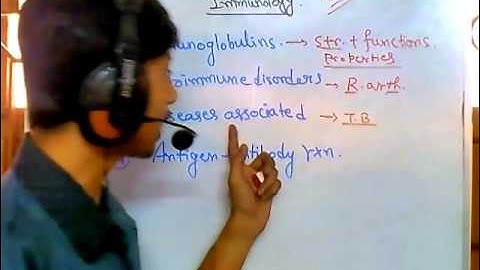 Immunology.
munoglobulins. → Str. + functions.
Properties
oimmune disorders → R. arth.
seases associated → T.B
Antigen - ntibody rxn.